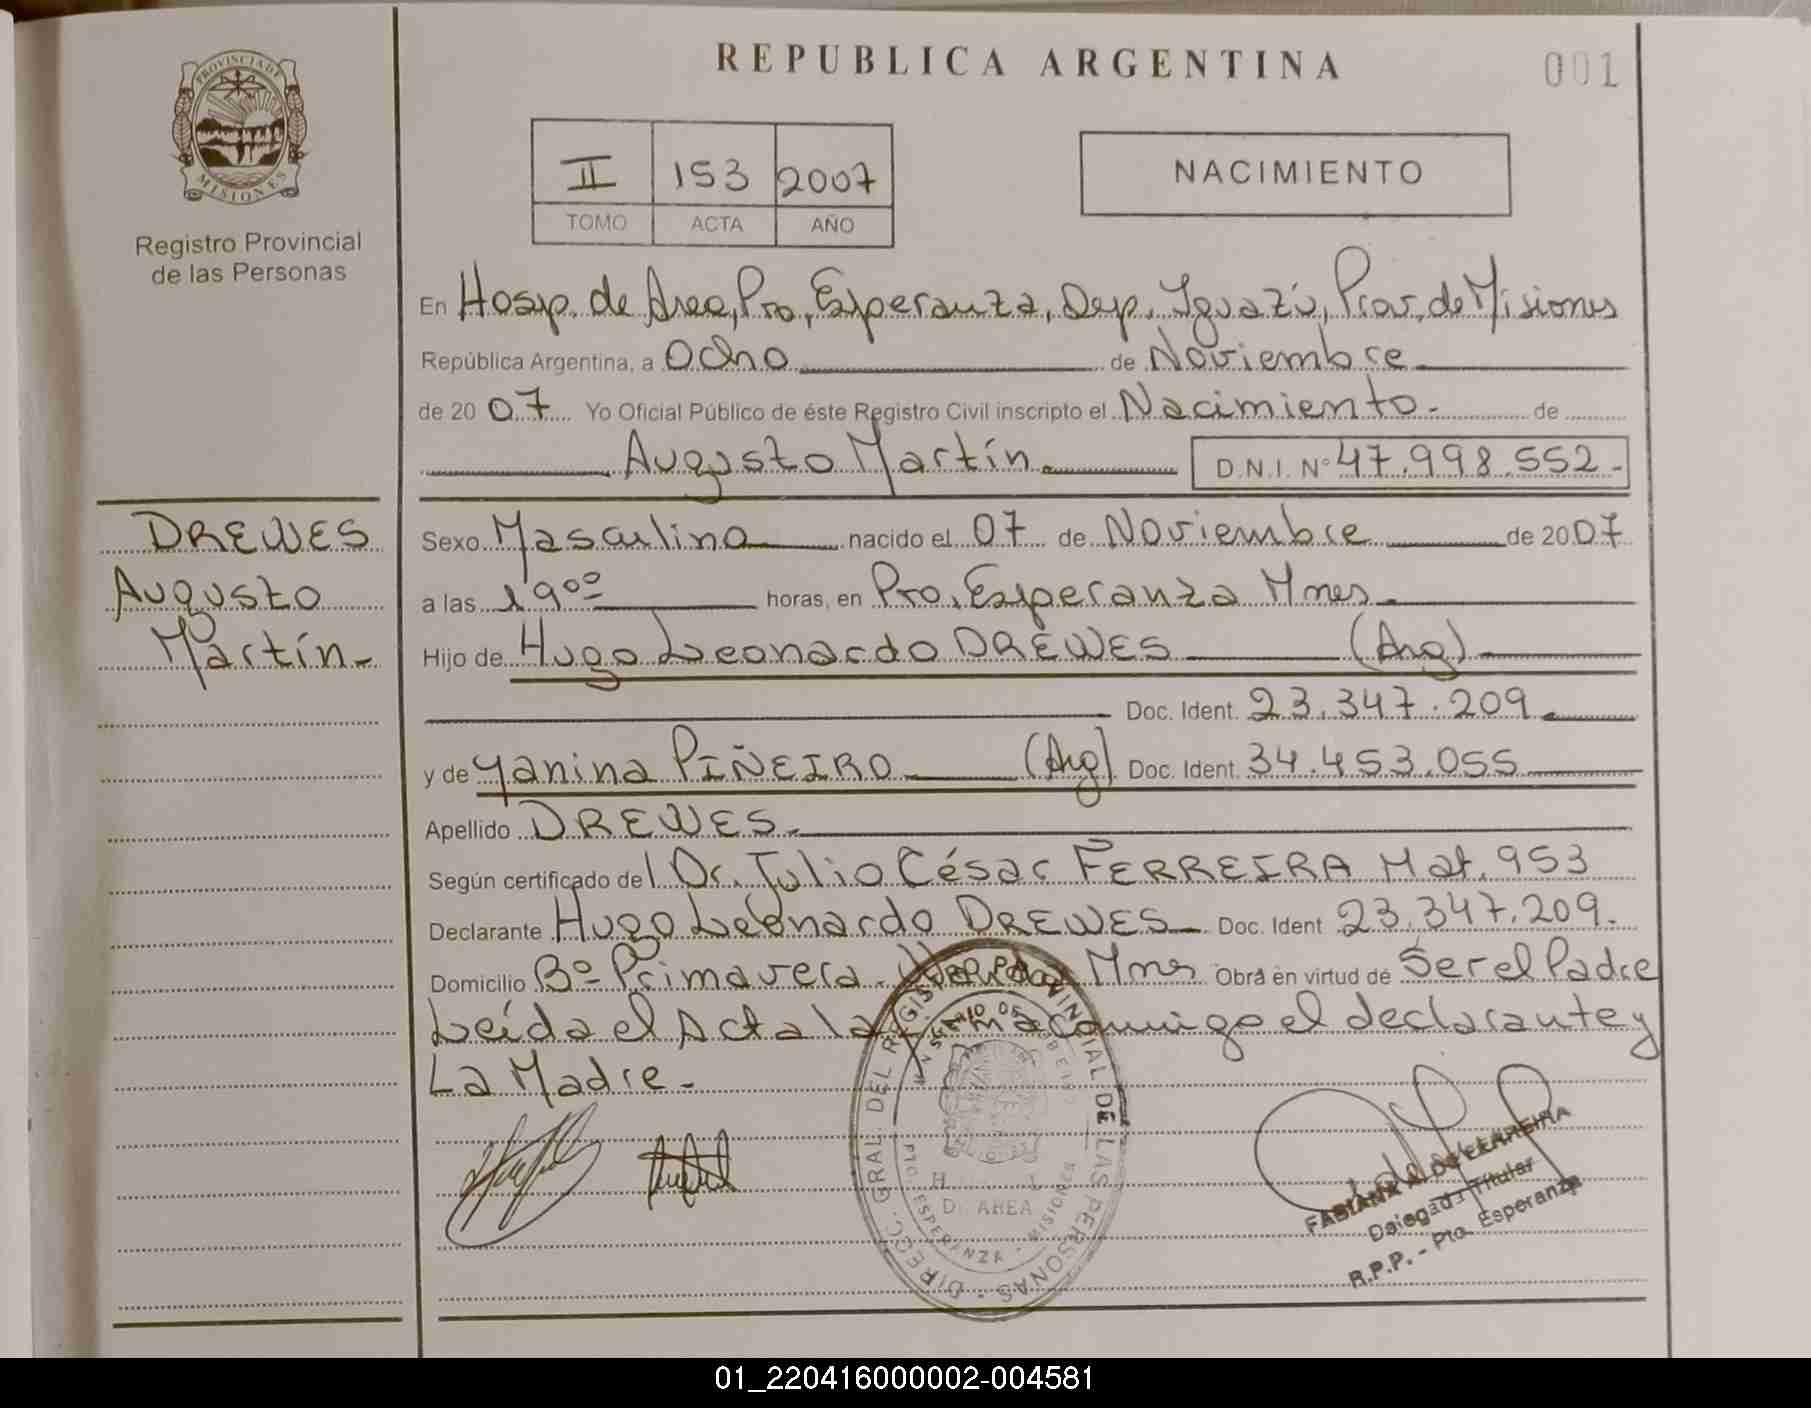 PROVINCIA DE
MISIONES
Registro Provincial
de las Personas
REPUBLICA ARGENTINA
001
II 153 2007
TOMO ACTA AÑO
NACIMIENTO
En Hosp. de Area, Pto, Esperanza, Dep. Iguazú, Prov. de Misiones
República Argentina, a Ocho de Noviembre
de 2007 Yo Oficial Público de éste Registro Civil inscripto el Nacimiento.- de
Augusto Martín. D.N.I. Nº 47.998.552.-
DREWES
Augusto
Martín.-
Sexo Masculino nacido el 07 de Noviembre de 2007
a las 19⁰⁰ horas, en Pto. Esperanza Mnes.
Hijo de Hugo Leonardo DREWES (Arg)
Doc. Ident. 23.347.209.
y de Yanina PIÑEIRO (Arg) Doc. Ident. 34.453.055
Apellido DREWES.
Según certificado del Dr. Julio César FERREIRA Mat. 953
Declarante Hugo Leonardo DREWES Doc. Ident 23.347.209.
Domicilio Bº Primavera. Mnes Obra en virtud de Ser el Padre
Leída el Acta la firma conmigo el declarante y
La Madre.-
DIRECC. GRAL. DEL REGISTRO PROVINCIAL DE LAS PERSONAS
AREA
PTO. ESPERANZA - MISIONES
FABIANA DE FERREIRA
Delegada Titular
R.P.P. - Pto. Esperanza
01_220416000002-004581